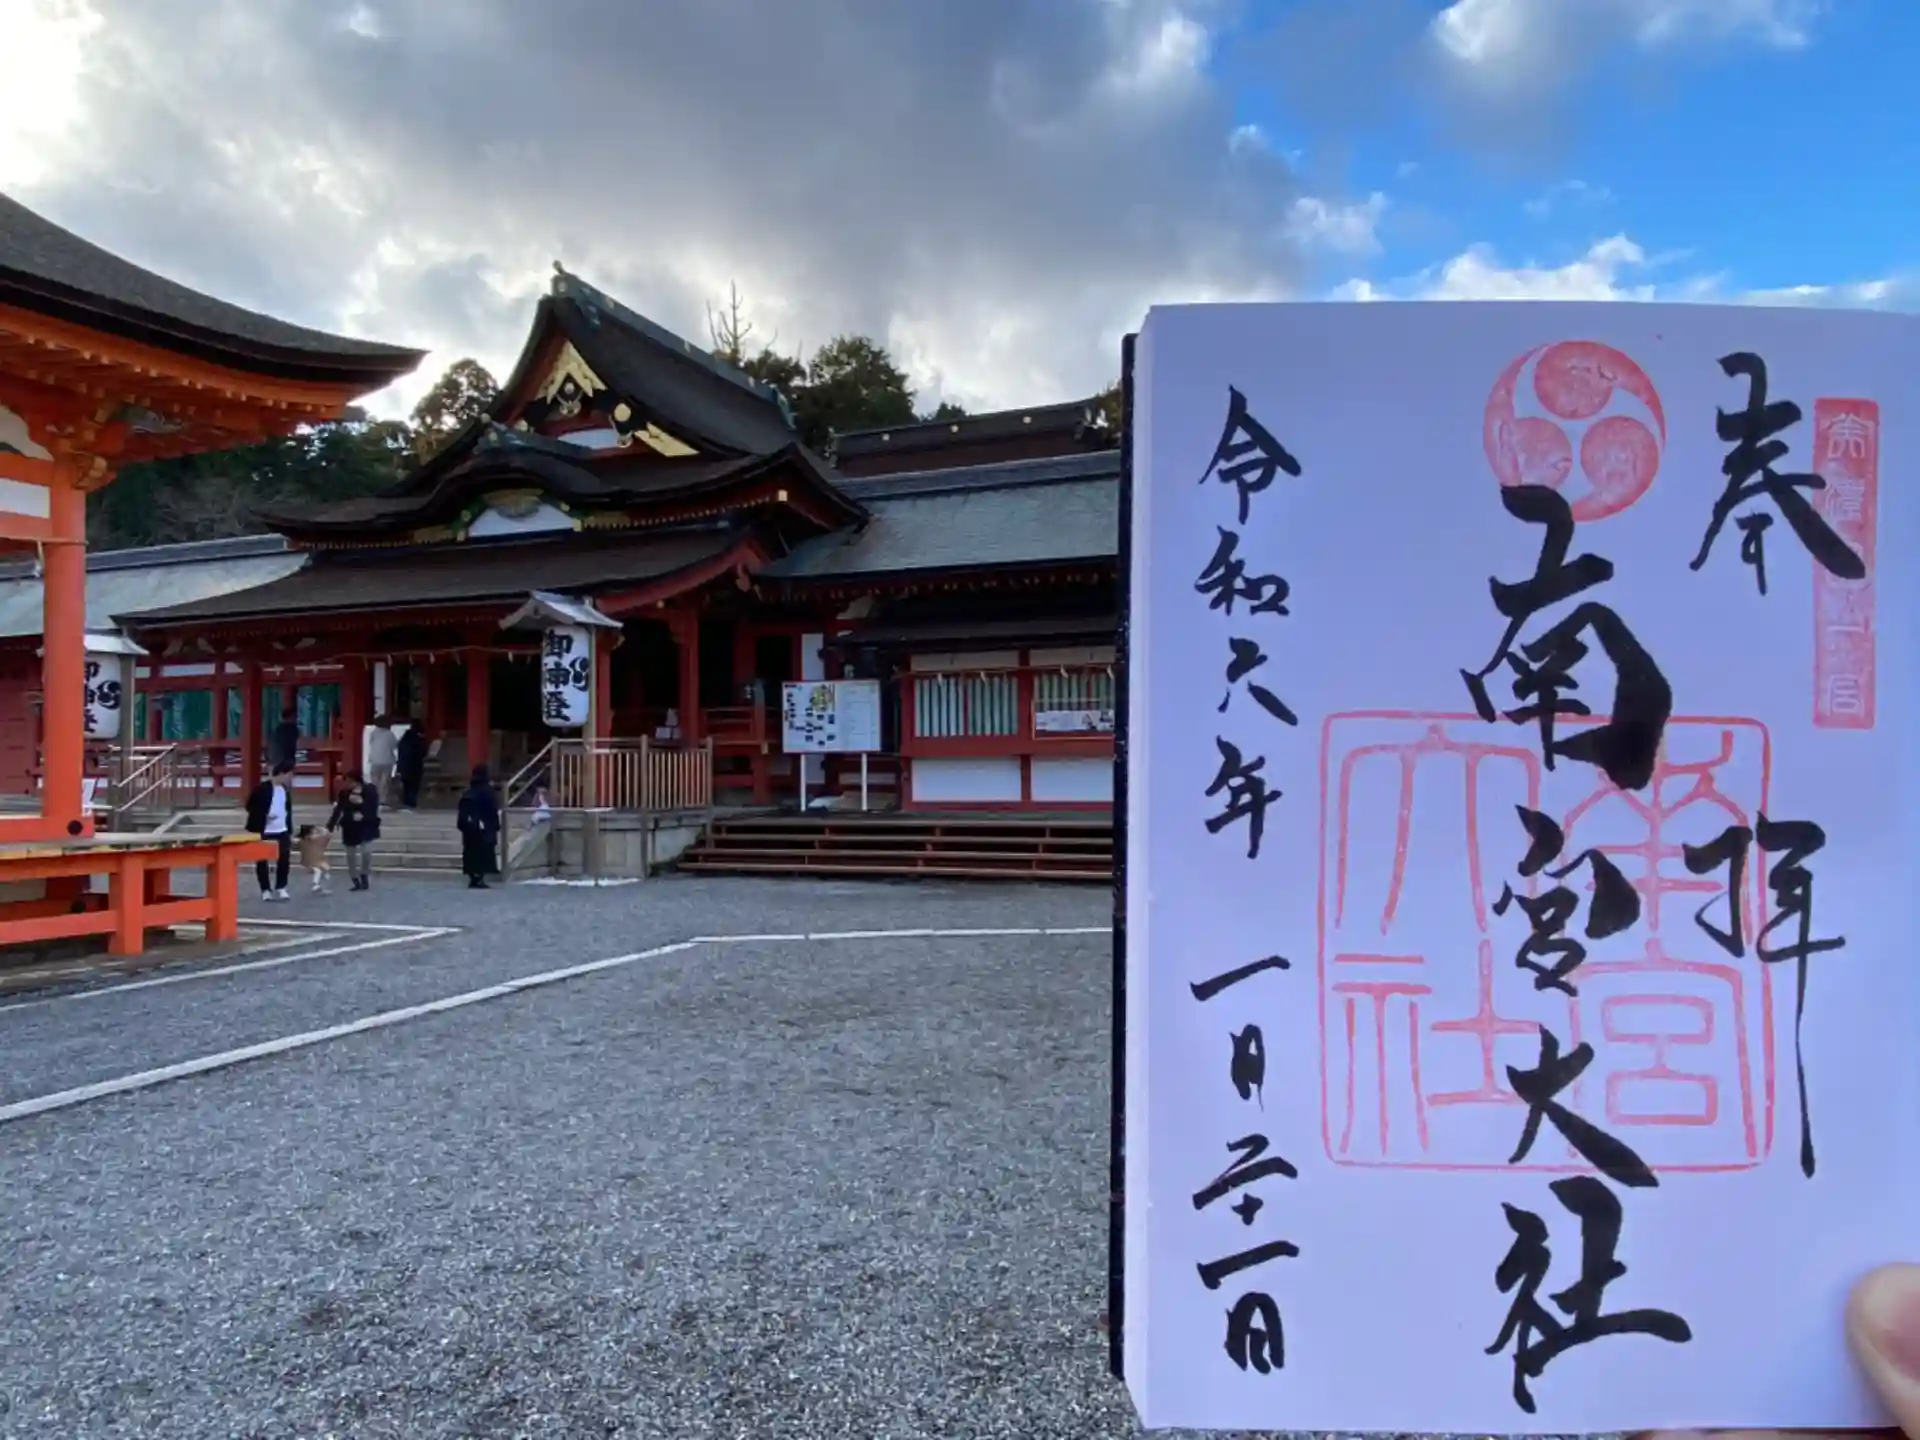 奉拝
南宮大社
令和六年一月二十一日
美濃国一宮
南宮大社
御神燈
御神燈